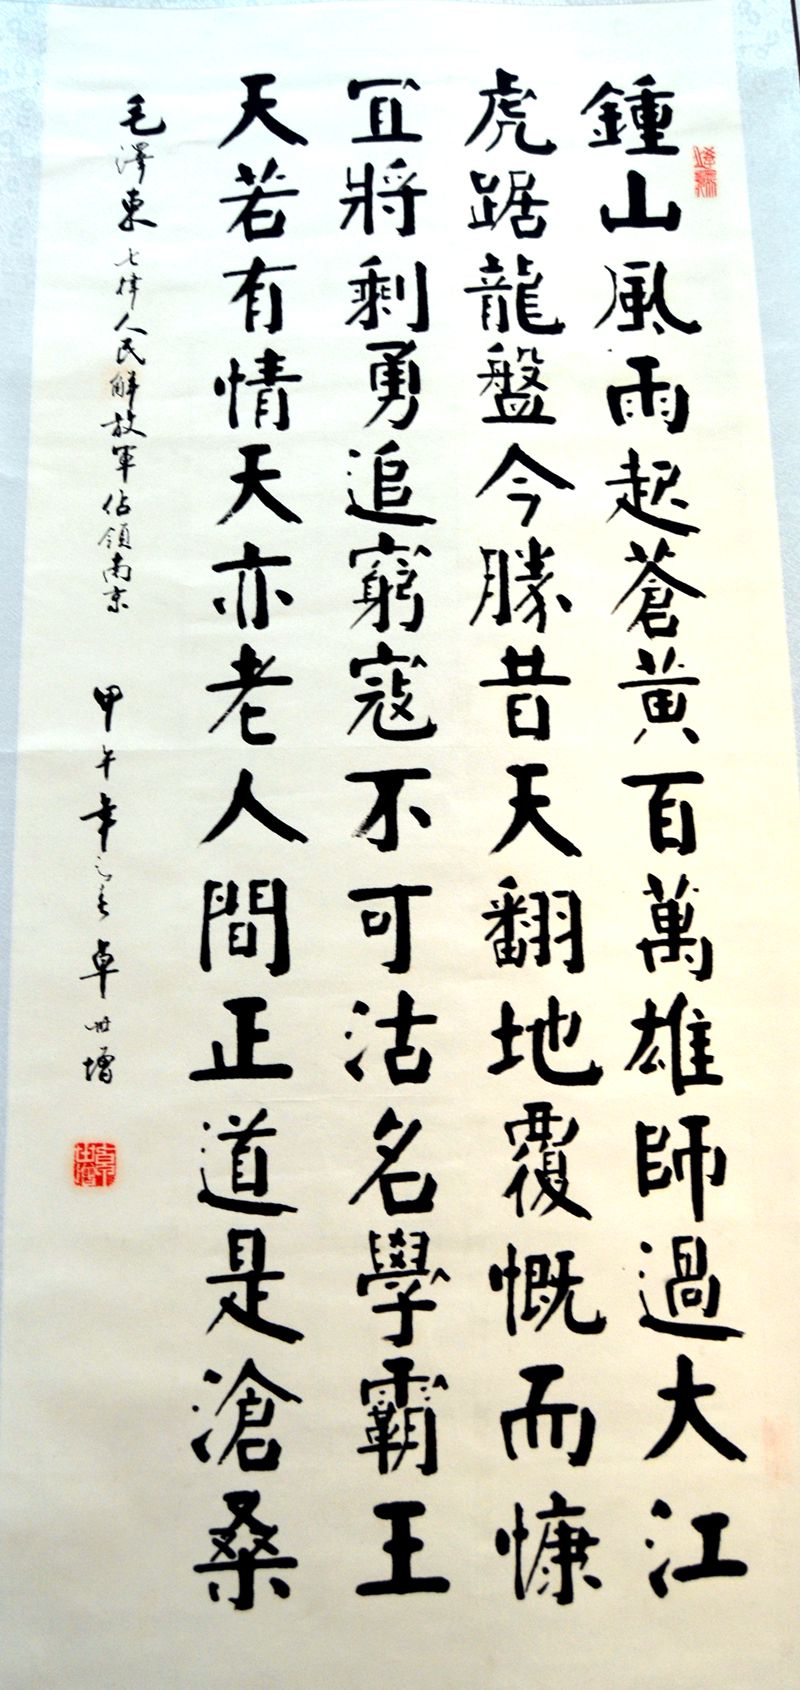 鍾山風雨起蒼黃百萬雄師過大江
虎踞龍盤今勝昔天翻地覆慨而慷
宜將剩勇追窮寇不可沽名學霸王
天若有情天亦老人間正道是滄桑
毛澤東七律人民解放軍佔領南京 甲午年之春卓世增